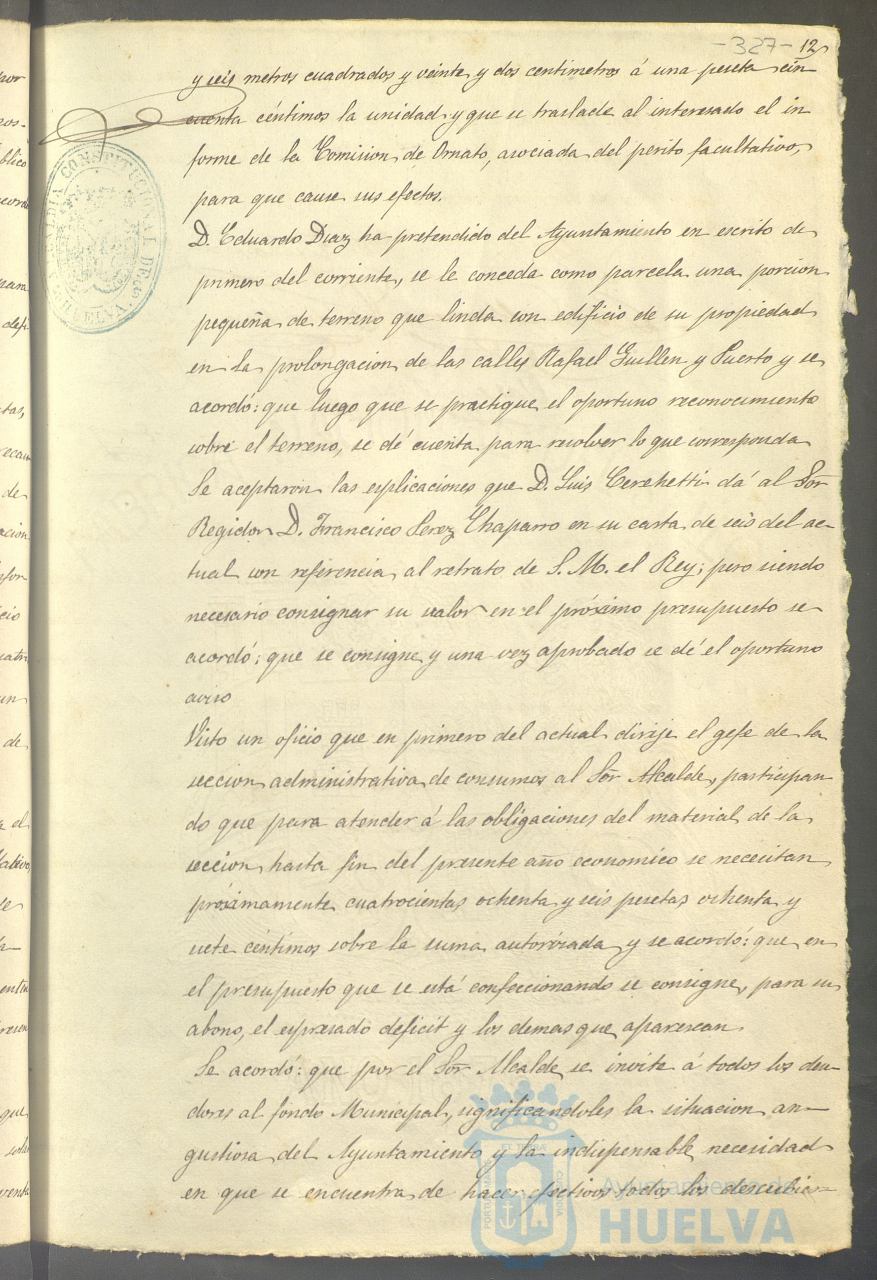 -327- 12
y seis metros cuadrados y veinte y dos centimetros á una peseta cin-
cuenta céntimos la unidad y que se traslade al interesado el in
forme de la Comision de Ornato, asociada del perito facultativo,
para que cause sus efectos.
D. Eduardo Diaz ha pretendido del Ayuntamiento en escrito de
primero del corriente, se le conceda como parcela una porcion
pequeña de terreno que linda con edificio de su propiedad
en la prolongacion de las calles Rafael Guillen y Puerto y se
acordó: que luego que se practique el oportuno reconocimiento
sobre el terreno, se dé cuenta para resolver lo que corresponda
Se aceptaron las esplicaciones que D. Luis Cerchetti dá al Sor
Regidor D. Francisco Perez Chaparro en su carta de seis del ac-
tual con referencia al retrato de S. M. el Rey; pero siendo
necesario consignar su valor en el próximo presupuesto se
acordó; que se consigne y una vez aprobado se dé el oportuno
aviso
Visto un oficio que en primero del actual dirije el gefe de la
seccion administrativa de consumos al Sor Alcalde, participan
do que para atender á las obligaciones del material de la
seccion hasta fin del presente año economico se necesitan
próximamente cuatrocientas ochenta y seis pesetas ochenta y
siete céntimos sobre la suma autorizada y se acordó: que en
el presupuesto que se está confeccionando se consigne, para su
abono, el espresado deficit y los demas que aparescan.
Se acordó: que por el Sor Alcalde se invite á todos los deu-
dores al fondo Municipal, significandoles la situacion an-
gustiosa del Ayuntamiento y la indispensable necesidad
en que se encuentra de hacer efectivos todos los descubier-
ALCALDIA CONSTITUCIONAL DE HUELVA
Ayuntamiento de
HUELVA